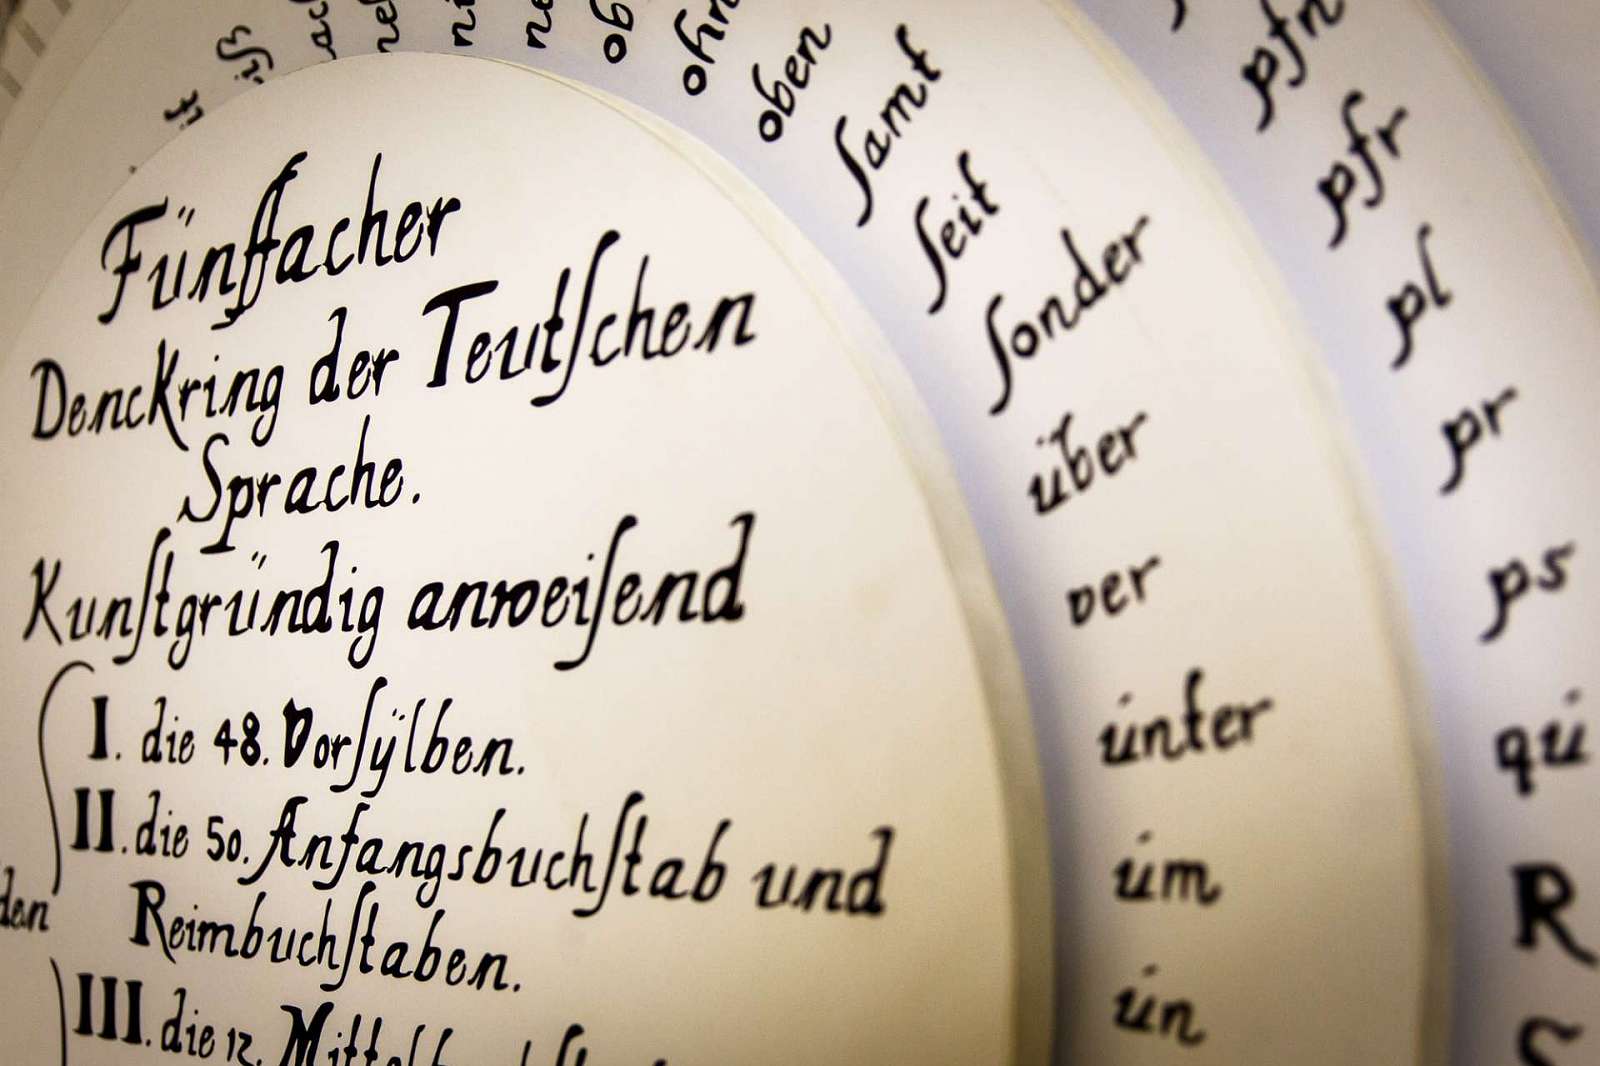 Fünffacher
Denckring der Teutſchen
Sprache.
Kunſtgründig anweiſend
I. die 48. Vorſÿlben.
II. die 50. Anfangsbuchſtab und
den Reimbuchſtaben.
III. die 12.
ohn
oben
ſamt
ſeit
ſonder
über
ver
unter
um
un
pfn
pfr
pl
pr
ps
qu
R
S